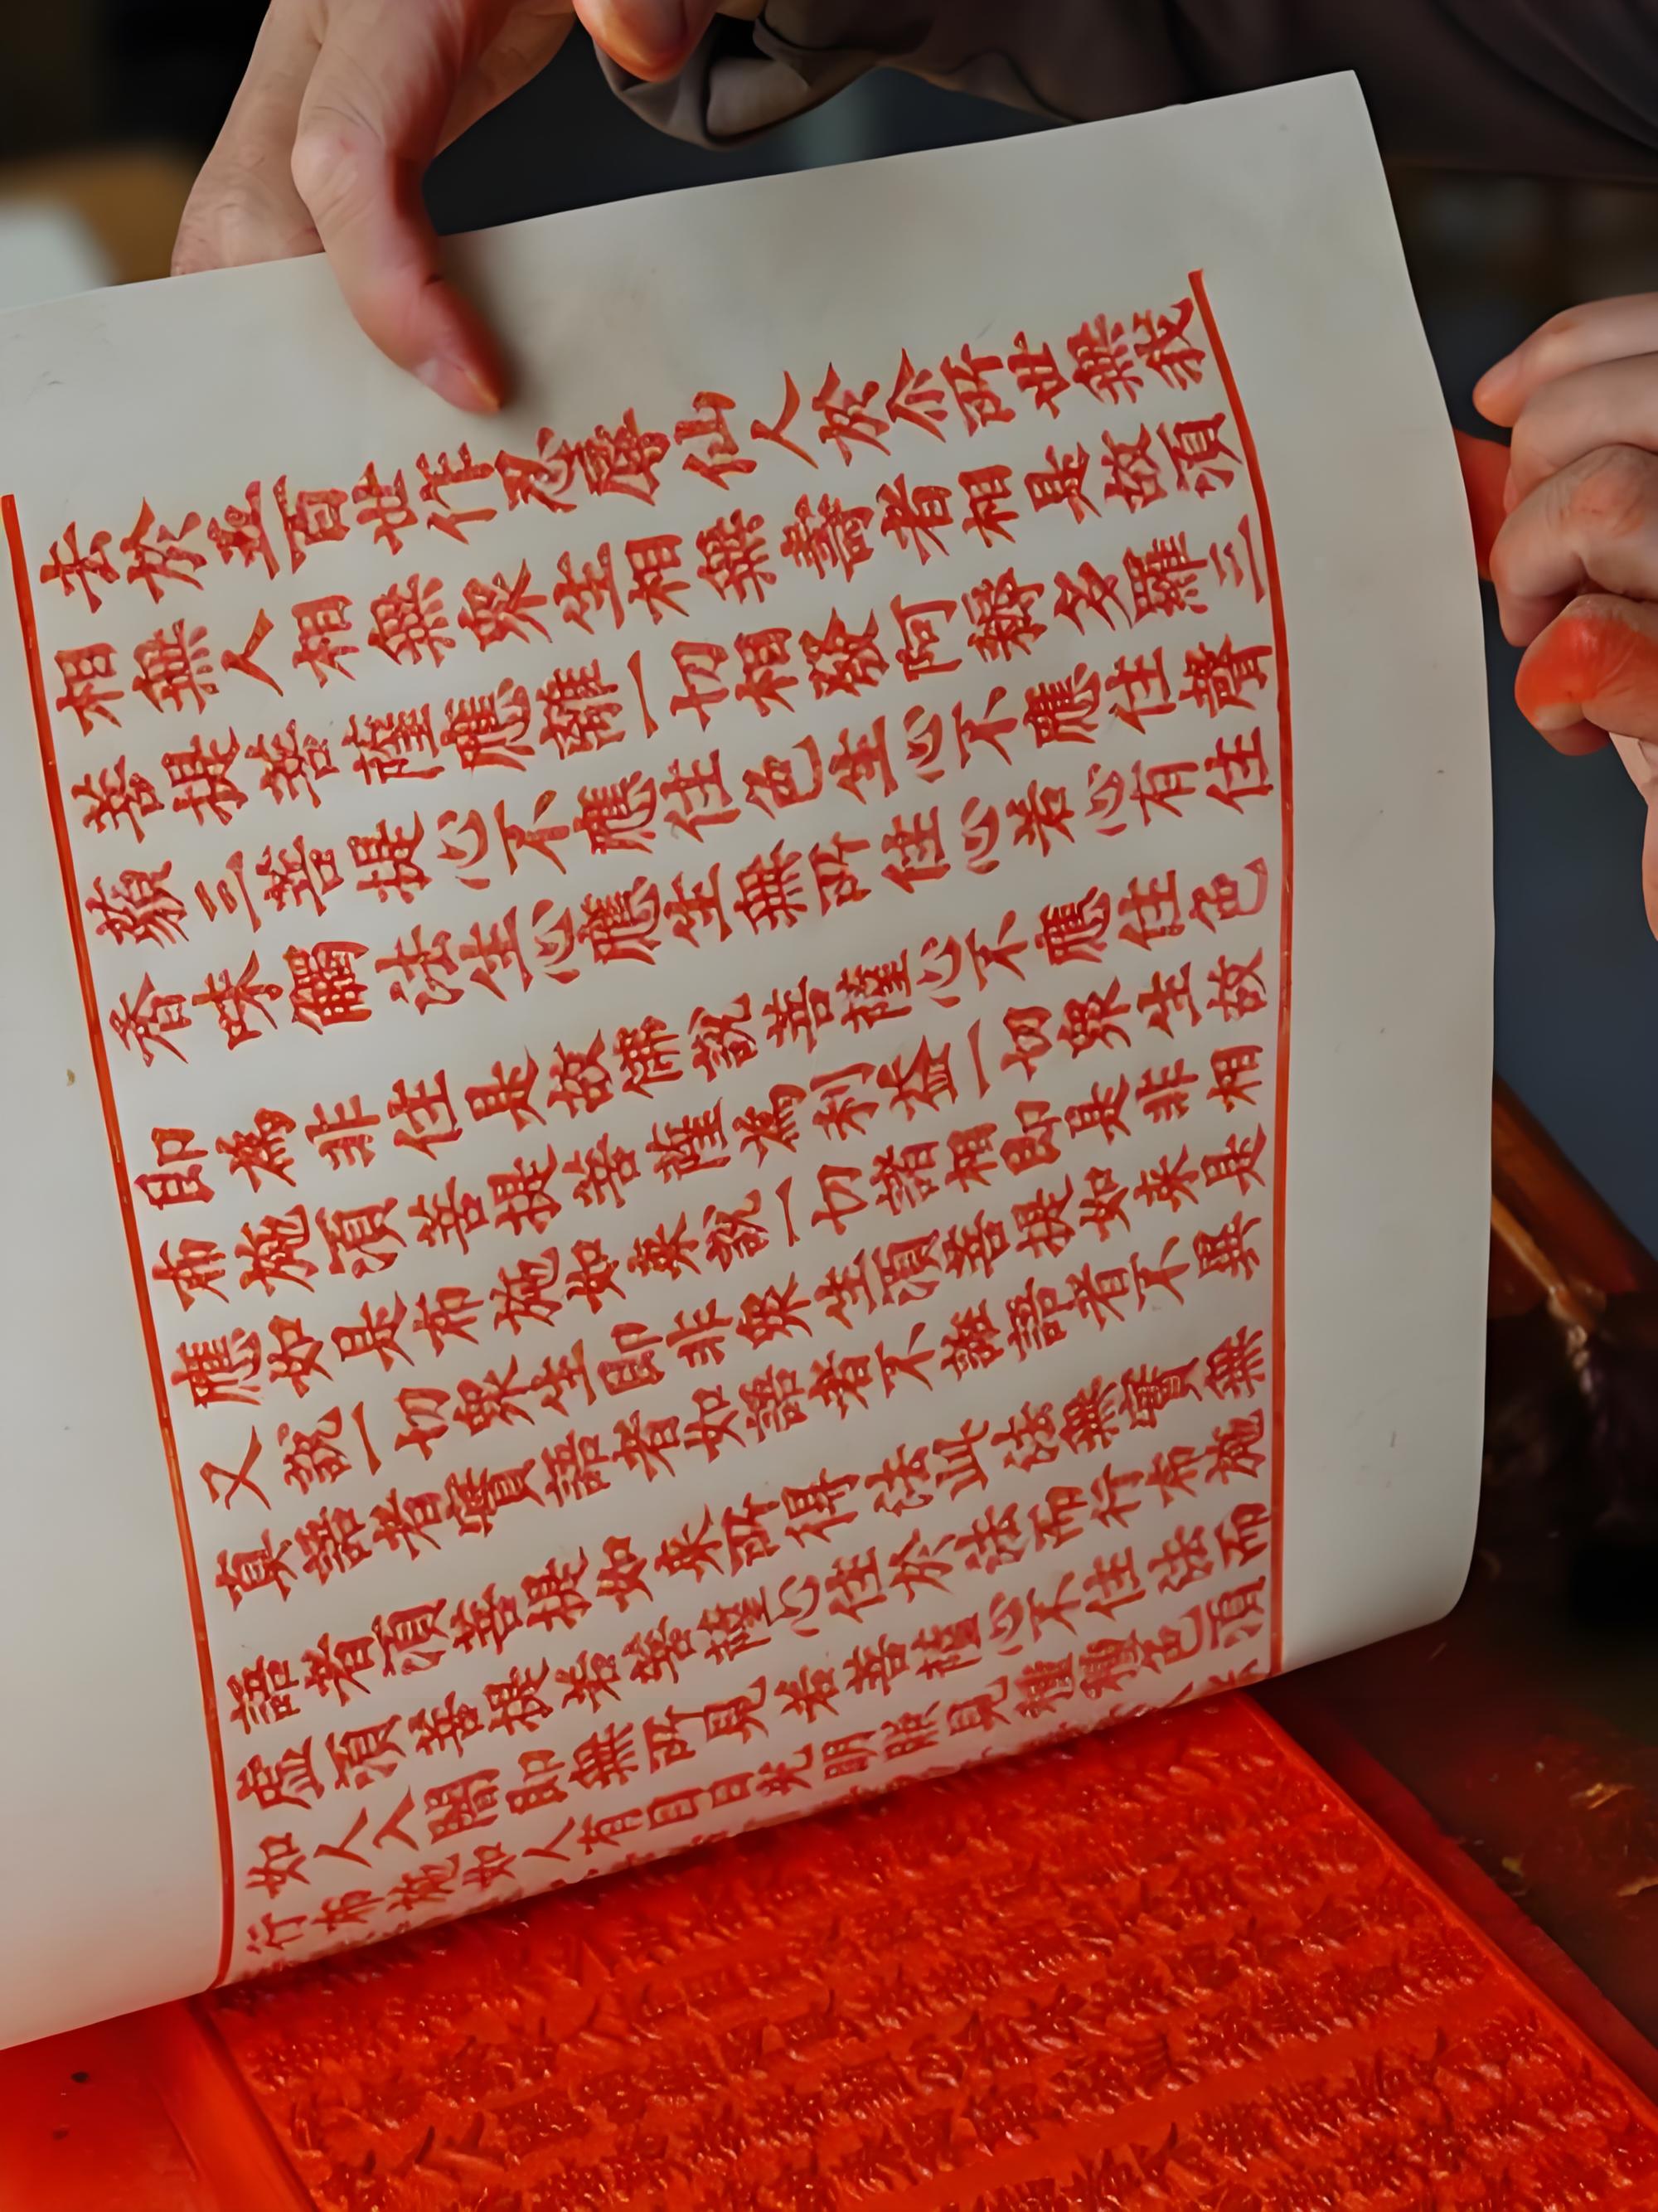 去於五百世作忍辱仙人於尒所世無我
相無人相無衆生相無壽者相是故須
菩提菩薩應離一切相發阿耨多羅三
藐三菩提心不應住色生心不應住聲
香味觸法生心應生無所住心若心有住
即為非住是故佛說菩薩心不應住色
布施須菩提菩薩為利益一切衆生故
應如是布施如來說一切諸相即是非相
又說一切衆生即非衆生須菩提如來是
真語者實語者如語者不誑語者不異
語者須菩提如來所得法此法無實無
虛須菩提若菩薩心住於法而行布施
如人入闇即無所見若菩薩心不住法而
行布施如人有目日光明照見種種色須